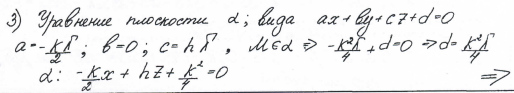 3) Уравнение плоскости α; вида ax+by+cz+d=0
a=-kГ/2; b=0; c=hГ, M∈α ⇒ -k²Г/4+d=0 ⇒ d=k²Г/4
α: -k/2x+hz+k²/4=0 ⇒